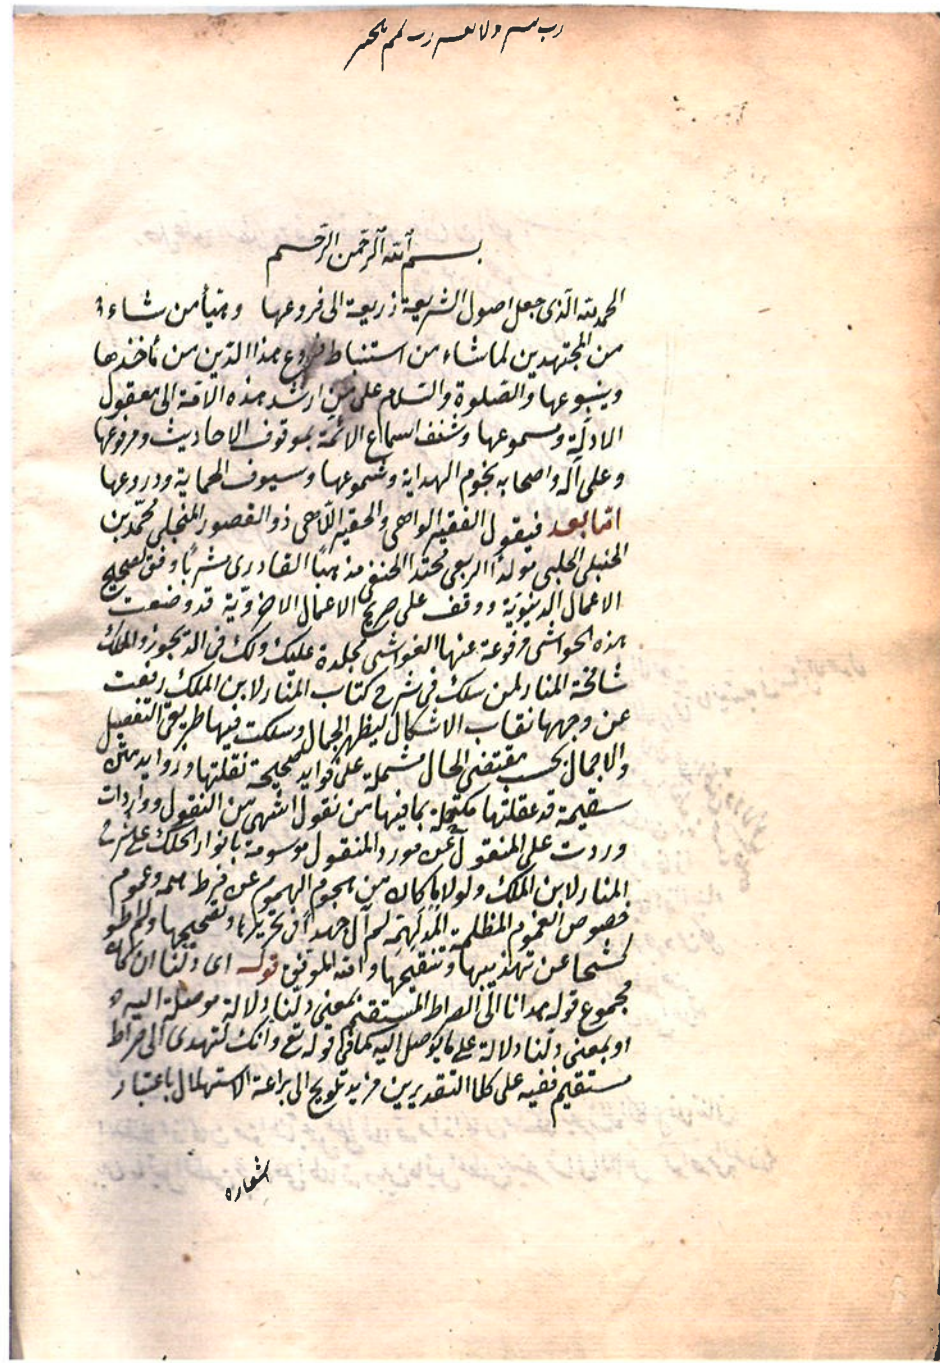 رب يسر ولا تعسر رب تمم بالخير
بسم الله الرحمن الرحيم
الحمد لله الذى جعل اصول الشريعة ذريعة الى فروعها وهيأ من شاء
من المجتهدين لما شاء من استنباط فروع هذا الدين من مأخذها
وينبوعها والصلوة والسلام على من ارشد هذه الامة الى معقول
الادلة ومسموعها وشنف اسماع الائمة بموقوف الاحاديث ومرفوعها
وعلى آله واصحابه نجوم الهداية وشموعها وسيوف الحماية ودروعها
اما بعد فيقول الفقير الواهى والحقير اللاهى ذو القصور المنجلى محمد بن
الحنبلى الحلبى مولدا الربعى محتدا الحنفى مذهبا القادرى مشربا وفق لصحيح
الاعمال الدنيوية ووقف على صريح الاعمال الاخروية قد وضعت
هذه الحواشى مرفوعة عنها الغواشى مجلدة عليك ولك فى الديجور والحلك
شائحة المنار لمن سلك فى شرح كتاب المنار لابن الملك رفعت
عن وجهها نقاب الاشكال ليظهر الجمال وسلكت فيها طريقى التفصيل
والاجمال بحسب مقتضى الحال مشتملة على فوايد صحيحة نقلتها وزوايد
سقيمة قد عقلتها بما فيها من نقول اشهى من النقول وواردات
وردت على المنقول عن مورد المنقول موسومة بانوار الحلك على شرح
المنار لابن الملك ولولا ما كان من هجوم الهموم عن فرط همه وعموم
خصوص الغموم المظلمة المدلهمة لم آل جهدا فى تحريرها وتصحيحها ولم اطو
كشحا عن تهذيبها وتنقيحها والله الموفق قوله اى دلنا ان كان
مجموع قوله هدانا الى الصراط المستقيم بمعنى دلنا دلالة موصلة اليه
او بمعنى دلنا دلالة على ما يوصل اليه كما فى قوله تع وانك لتهدى الى صراط
مستقيم ففيه على كلا التقديرين مزيد تلويح الى براعة الاستهلال باعتبار
اشعاره